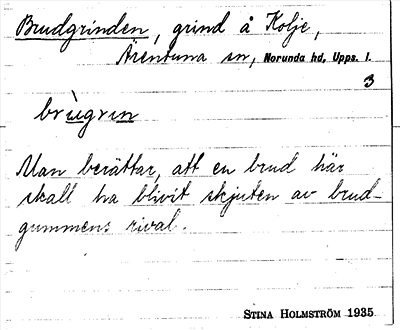 Brudgrinden, grind å Kolje,
Ärentuna sn, Norunda hd, Upps. l.
3
brùgrın
Man berättar, att en brud här
skall ha blivit skjuten av brud-
gummens rival.
STINA HOLMSTRÖM 1935